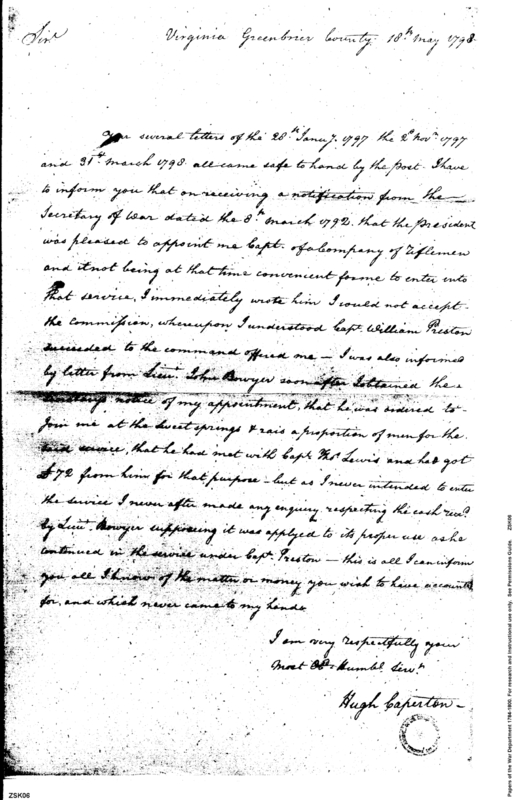 Sir
Virginia Greenbrier County 18th May 1798
You several letters of the 28th Janu.y 1797 the 2d Novr 1797
and 31st March 1798 all came safe to hand by the post. I have
to inform you that on receiving a notification from the
Secretary of War dated the 8th March 1792 that the President
was pleased to appoint me Capt. of a Company of Riflemen
and it not being at that time convenient for me to enter into
that service, I immediately wrote him I could not accept
the commission, whereupon I understood Capt William Preston
succeeded to the command offered me — I was also informed
by letter from Lieut. John Bowyer soon after I obtained the
notice of my appointment, that he was ordered to
join me at the Sweet springs & rais a proportion of men for the
said service, that he had met with Capt. Thos Lewis and had got
$72 from him for that purpose - but as I never intended to enter
the service I never after made any enquiry respecting the cash recd
by Lieut. Bowyer supposing it was applyed to its proper use as he
continued in the service under Capt. Preston — this is all I can inform
you, all I know of the matter or money you wish to have accounted
for, and which never came to my hands
I am very respectfully your
most Obt Humbl. Servt
Hugh Caperton
ZSK06
Papers of the War Department 1784-1800. For research and instructional use only. See Permissions Guide. ZSK06